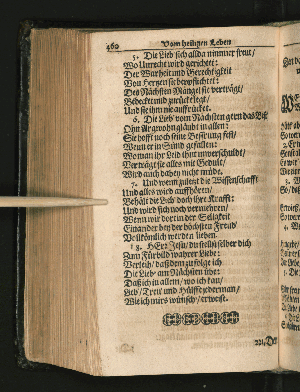 460 Vom heiligen Leben
5. Die Lieb sich allda nimmer freut/
Wo Unrecht wird gerichtet:
Der Warheit und Gerechtigkeit
Von Hertzen sie verpflichtet:
Des Nächsten Mängel sie verträgt/
Bedecket und zurücke legt/
Und sie ihm nie auffrücket.
6. Die Lieb vom Nächsten gern das Best
Ohn Argwohn gläubt in allen:
Sie hofft noch seine Besserung fest/
Wenn er in Sünd gefallen:
Wo man ihr Leid thut unverschuldt/
Verträgt sie alles mit Gedult/
Wird auch dabey nicht müde.
7. Und wenn zuletzt die Wissenschafft
Und alles wird auffhören/
Behält die Lieb doch ihre Krafft:
Und wird sich noch vermehren/
Wenn wir dort in der Seligkeit
Einander bey der höchsten Freud/
Vollkömlich werden lieben.
8. HErr Jesu/ du selbst selber dich
Zum Fürbild wahrer Liebe:
Verleih/ daß dem zufolge ich
Die Lieb am Nächsten übe:
Daß ich in allem/ wo ich kan/
Lieb/ Treu und Hülffe jederman/
Wie ich mirs wünsch/ erweise.